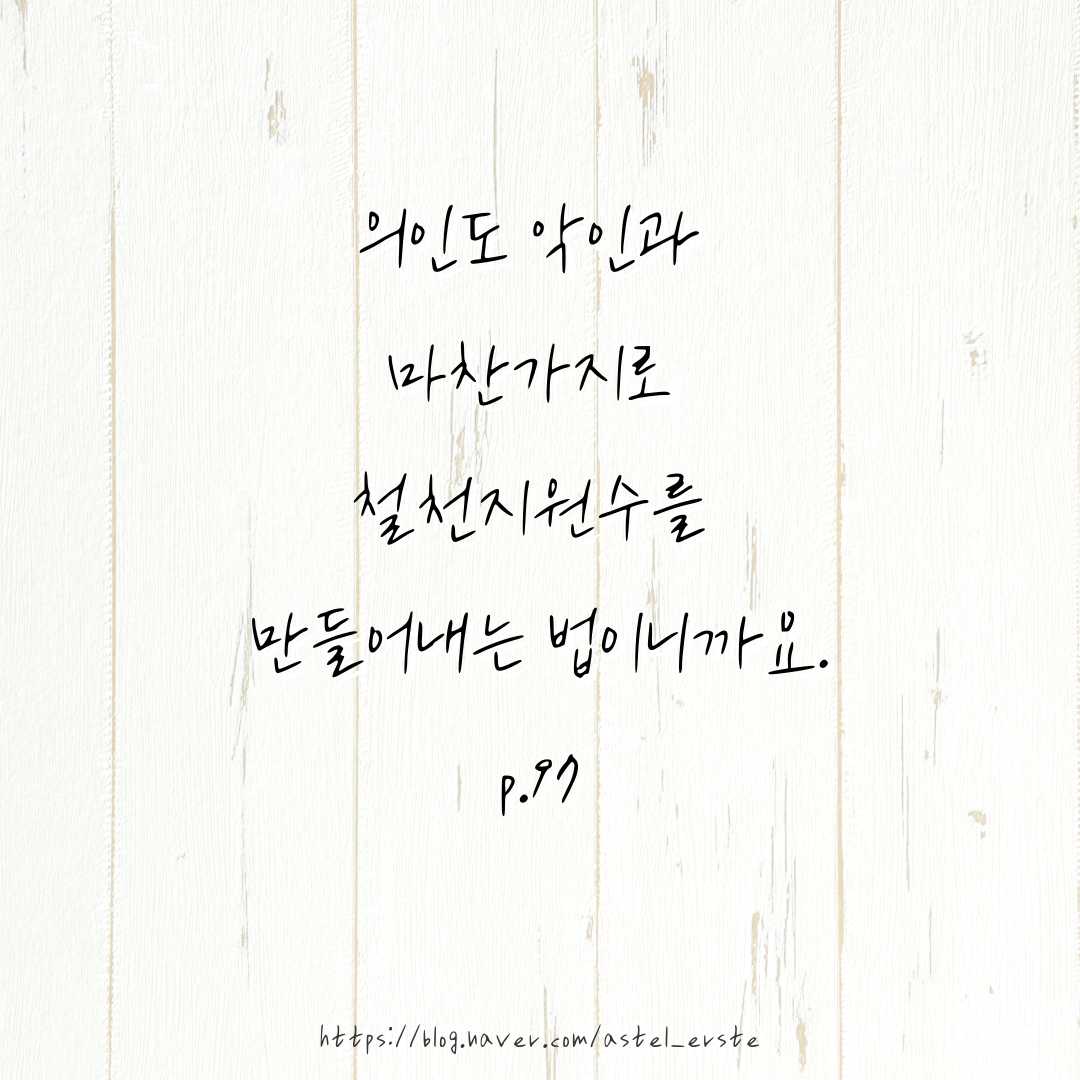 의인도 악인과
마찬가지로
철천지원수를
만들어내는 법이니까요.
p.97
https://blog.naver.com/astel_erste